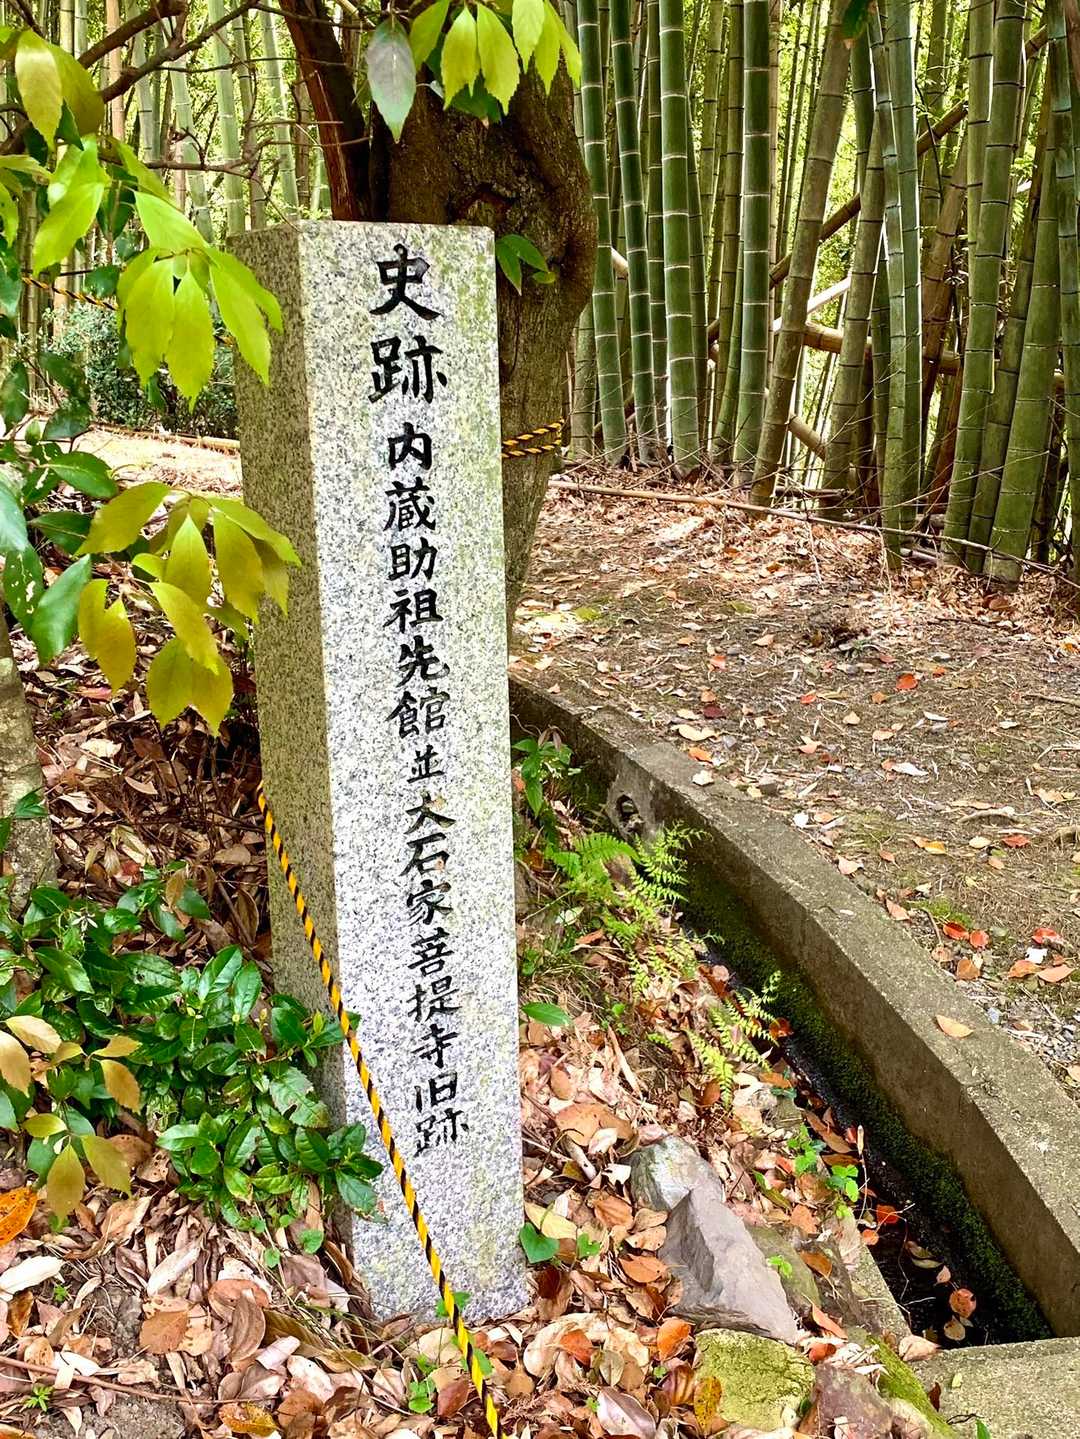 史跡 内蔵助祖先館並大石家菩提寺旧跡